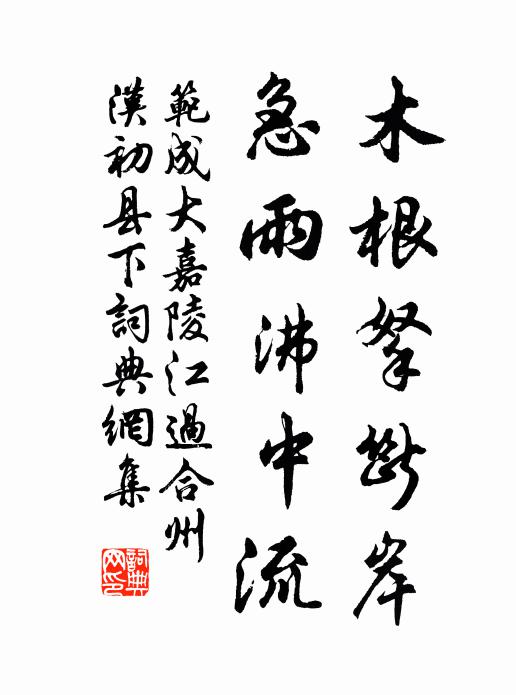 木根拏斷岸
急雨沸中流
範成大嘉陵江過合州
漢初县下詞典網集
詞典网印